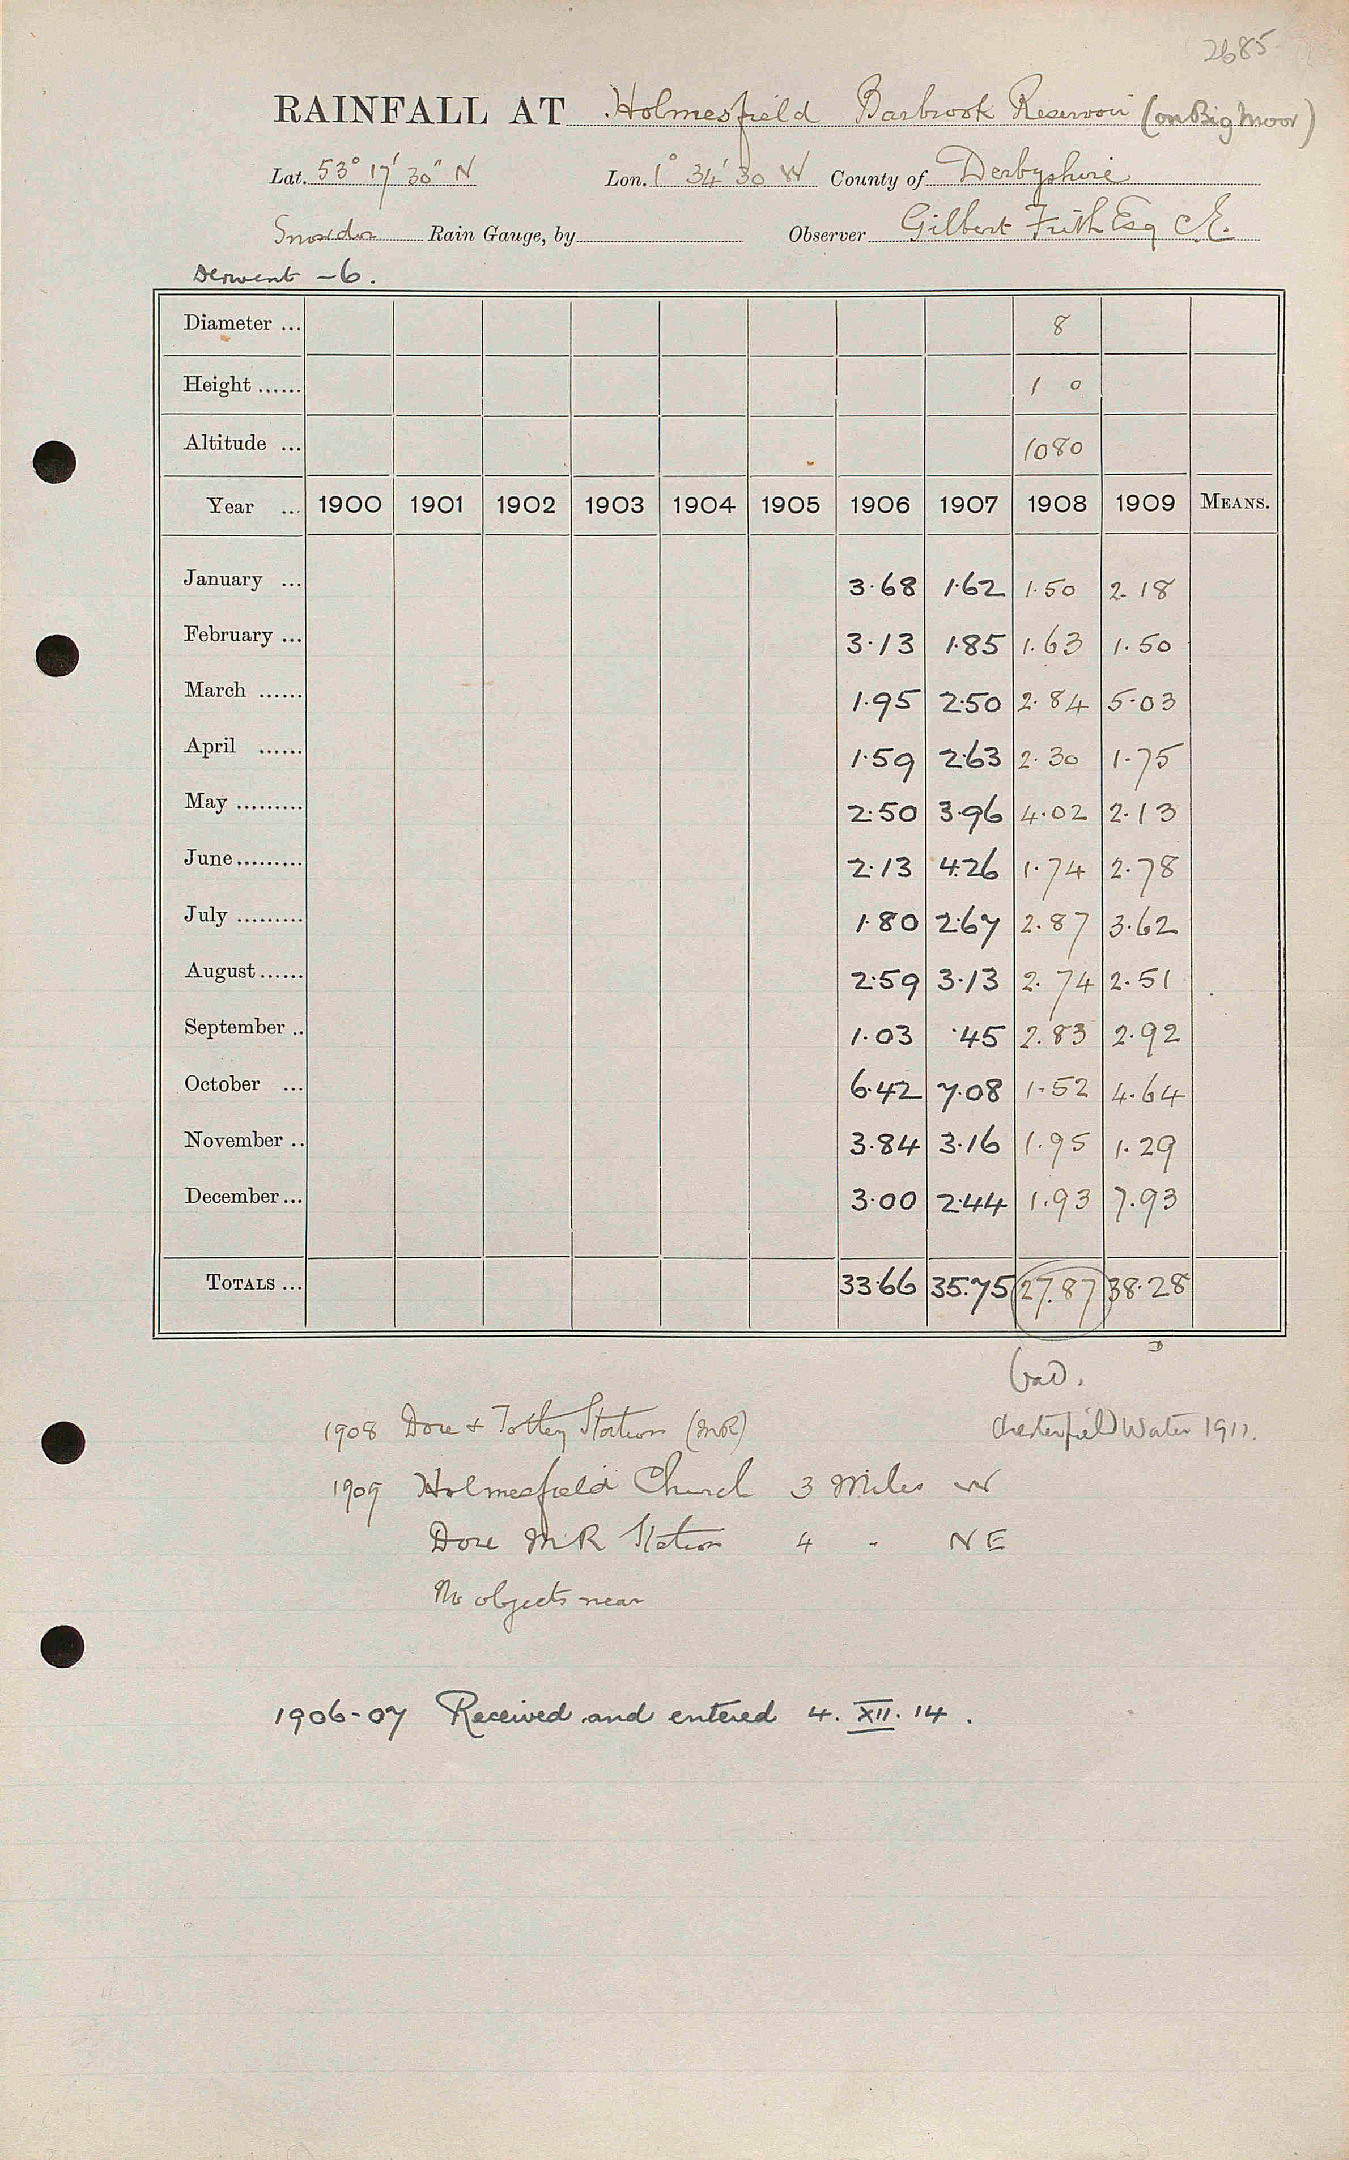 2685
RAINFALL AT Holmesfield Barbrook Reservoir (on Big Moor)
Lat. 53° 17' 30" N Lon. 1° 34' 30 W County of Derbyshire
Snowdon Rain Gauge, by Observer Gilbert Frith Esq C.E.
Derwent – 6.
Diameter ... 8
Height ...... 1 0
Altitude ... 1080
Year ... 1900 1901 1902 1903 1904 1905 1906 1907 1908 1909 MEANS.
January ... 3·68 1·62 1·50 2·18
February ... 3·13 1·85 1·63 1·50
March ...... 1·95 2·50 2·84 5·03
April ...... 1·59 2·63 2·30 1·75
May ......... 2·50 3·96 4·02 2·13
June......... 2·13 4·26 1·74 2·78
July ......... 1·80 2·67 2·87 3·62
August...... 2·59 3·13 2·74 2·51
September .. 1·03 ·45 2·83 2·92
October ... 6·42 7·08 1·52 4·64
November .. 3·84 3·16 1·95 1·29
December... 3·00 2·44 1·93 7·93
TOTALS ... 33·66 35·75 27·87 38·28
bad.
1908 Dore & Totley Station (MR)
Chesterfield Water 1911.
1909 Holmesfield Church 3 Miles W
Dore M R Station 4 " N E
No objects near
1906-07 Received and entered 4. XII. 14.